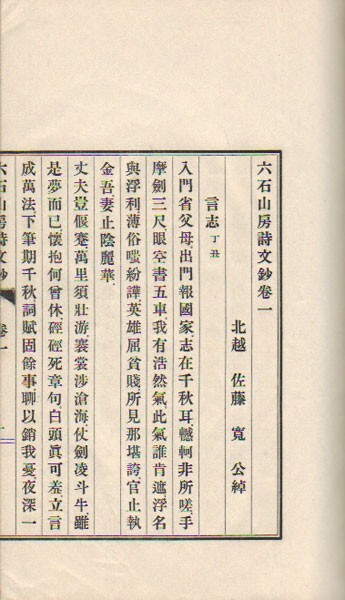 六石山房詩文鈔卷一
北越 佐藤 寬 公綽
言志 丁丑
入門省父母出門報國家志在千秋耳轗軻非所嗟手
摩劍三尺眼空書五車我有浩然氣此氣誰肯遮浮名
與浮利薄俗嗤紛譁英雄屈貧賤所見那堪誇官止執
金吾妻止陰麗華
丈夫豈偃蹇萬里須壯游褰裳涉滄海仗劍凌斗牛雖
是夢而已懷抱何曾休硜硜死章句白頭眞可羞立言
成萬法下筆期千秋詞賦固餘事聊以銷我憂夜深一
六石山房詩文鈔 卷一